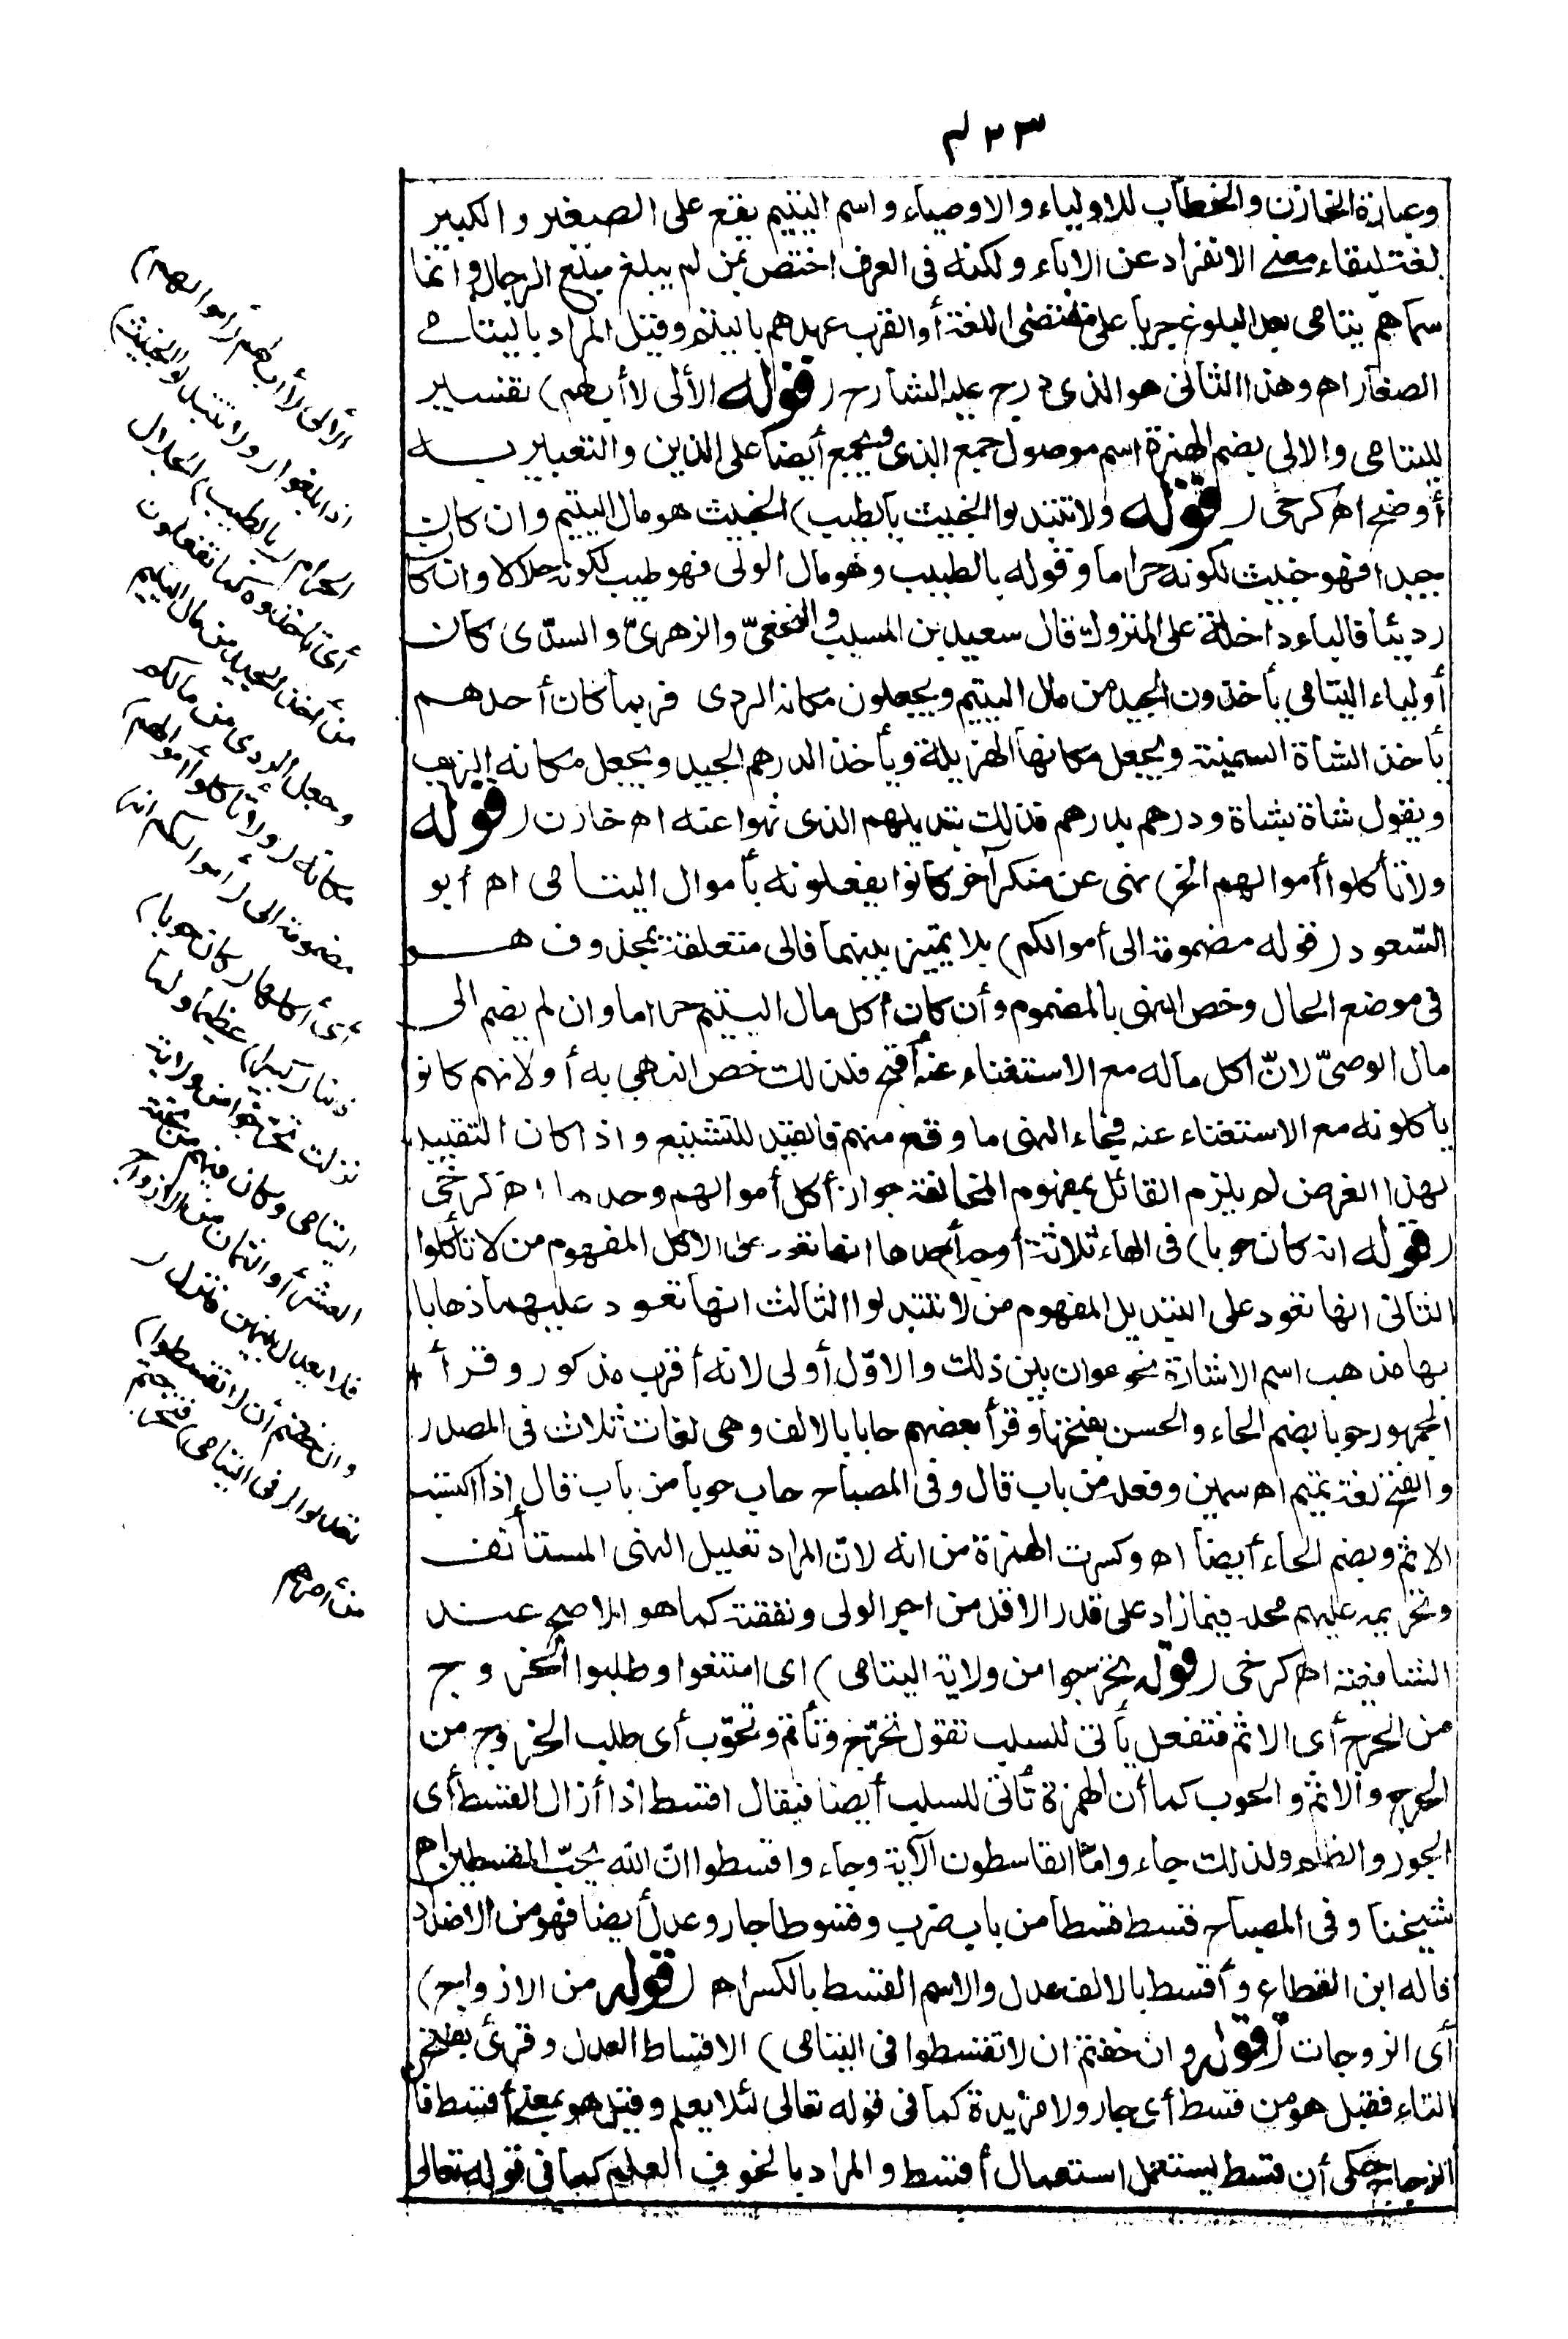 ٤٢٣
وعبارة الخازن والخطاب للاولياء والاوصياء واسم اليتيم يقع على الصغير والكبير
لغة لبقاء معنى الانفراد عن الاباء ولكنه فى العرف اختص بمن لم يبلغ مبلغ الرجال وانما
سماهم يتامى بعد البلوغ جريا على مقتضى اللغة أو لقرب عهدهم باليتم وقيل المراد باليتامى
الصغار اه وهذا الثانى هو الذى درج عليه الشارح (قوله الألى لا أب لهم) تفسير
لليتامى والالى بضم الهمزة اسم موصول جمع الذى ويجمع أيضا على الذين والتعبير به
أوضح اه كرخى (قوله ولا تتبدلوا الخبيث بالطيب) الخبيث هو مال اليتيم وان كان
جيدا فهو خبيث لكونه حراما وقوله بالطيب وهو مال الولى فهو طيب لكونه حلالا وان كان
رديئا فالباء داخلة على المتروك قال سعيد بن المسيب والنخعىّ والزهرىّ والسدّى كان
أولياء اليتامى يأخذون الجيد من مال اليتيم ويجعلون مكانه الردى فربما كان أحدهم
يأخذ الشاة السمينة ويجعل مكانها الهزيلة ويأخذ الدرهم الجيد ويجعل مكانه الزيف
ويقول شاة بشاة ودرهم بدرهم فذلك تبديلهم الذى نهوا عنه اه خازن (قوله
ولا تأكلوا أموالهم الخ) نهى عن منكر آخر كانوا يفعلونه بأموال اليتامى اه أبو
السّعود (قوله مضمومة الى أموالكم) بلا تمييز بينهما فالى متعلقة بمحذوف هو
فى موضع الحال وخص النهى بالمضموم وأن كان أكل مال اليتيم حراما وان لم يضم الى
مال الوصىّ لانّ اكل ماله مع الاستغناء عنه أقبح فلذلك خص النهى به أو لانهم كانوا
ياكلونه مع الاستغناء عنه فجاء النهى ما وقع منهم فالقيد للتشنيع واذا كان التقييد
لهذا الغرض لم يلزم القائل بمفهوم المخالفة جواز أكل أموالهم وحدها اه كرخى
(قوله انه كان حوبا) فى الهاء ثلاثة أوجه أحدها انها تعود على الاكل المفهوم من لا تأكلوا
الثانى انها تعود على التبديل المفهوم من لا تتبدلوا الثالث انها تعود عليهما ذهابا
بها مذهب اسم الاشارة نحو عوان بين ذلك والاوّل أولى لانه أقرب مذكور وقرأ
الجمهور حوبا بضم الحاء والحسن بفتحها وقرأ بعضهم حابا بالالف وهى لغات ثلاث فى المصدر
والفتح لغة تميم اه سمين وفعله من باب قال وفى المصباح حاب حوبا من باب قال اذا اكتسب
الاثم وبضم الحاء أيضا اه وكسرت الهمزة من انه لانّ المراد تعليل النهى المستأنف
وتحريمه عليهم محله فيما زاد على قدر الاقل من اجر الولى ونفقته كما هو الاصح عند
الشافعية اه كرخى (قوله تحرجوا من ولاية اليتامى) اى امتنعوا وطلبوا الخروج
من الحرج أى الاثم فتفعل يأتى للسلب تقول تحرّج وتأثم وتحوّب أى طلب الخروج من
الحرج والاثم والحوب كما أن الهمزة تأتى للسلب أيضا فيقال اقسط اذا أزال القسط أى
الجور والظلم ولذلك جاء وامّا القاسطون الآية وجاء واقسطوا انّ الله يحبّ المقسطين اه
شيخنا وفى المصباح قسط قسطا من باب ضرب وقسوطا جار وعدل أيضا فهو من الاضداد
قاله ابن القطاع وأقسط بالالف عدل والاسم القسط بالكسر اه (قوله من الازواج)
أى الزوجات (قوله وان خفتم ان لا تقسطوا فى اليتامى) الاقساط العدل وقرئ بفتح
التاء فقيل هو من قسط أى جار ولا مزيدة كما فى قوله تعالى لئلا يعلم وقيل هو بمعنى أقسط فان
الزجاج حكى أن قسط يستعمل استعمال أقسط والمراد بالخوف العلم كما فى قوله تعالى
الألى لا أب لهم (أموالهم)
اذا بلغوا (ولا تتبدلوا الخبيث)
الحرام (بالطيب) الحلال
أى تأخذوه كما تفعلون
من أخذ الجيد من مال اليتيم
وجعل الردى من مالكم
مكانه (ولا تأكلوا أموالهم)
مضمومة الى (أموالكم انه)
أى أكلها (كان حوبا)
ذنبا (كبيرا) عظيما ولما
نزلت تحرجوا من ولاية
اليتامى وكان فيهم من تحته
العشر أو الثمان من الازواج
فلا يعدل بينهن فنزل (
وان خفتم أن لا تقسطوا)
تعدلوا (فى اليتامى) فتحرجتم
من أمرهم